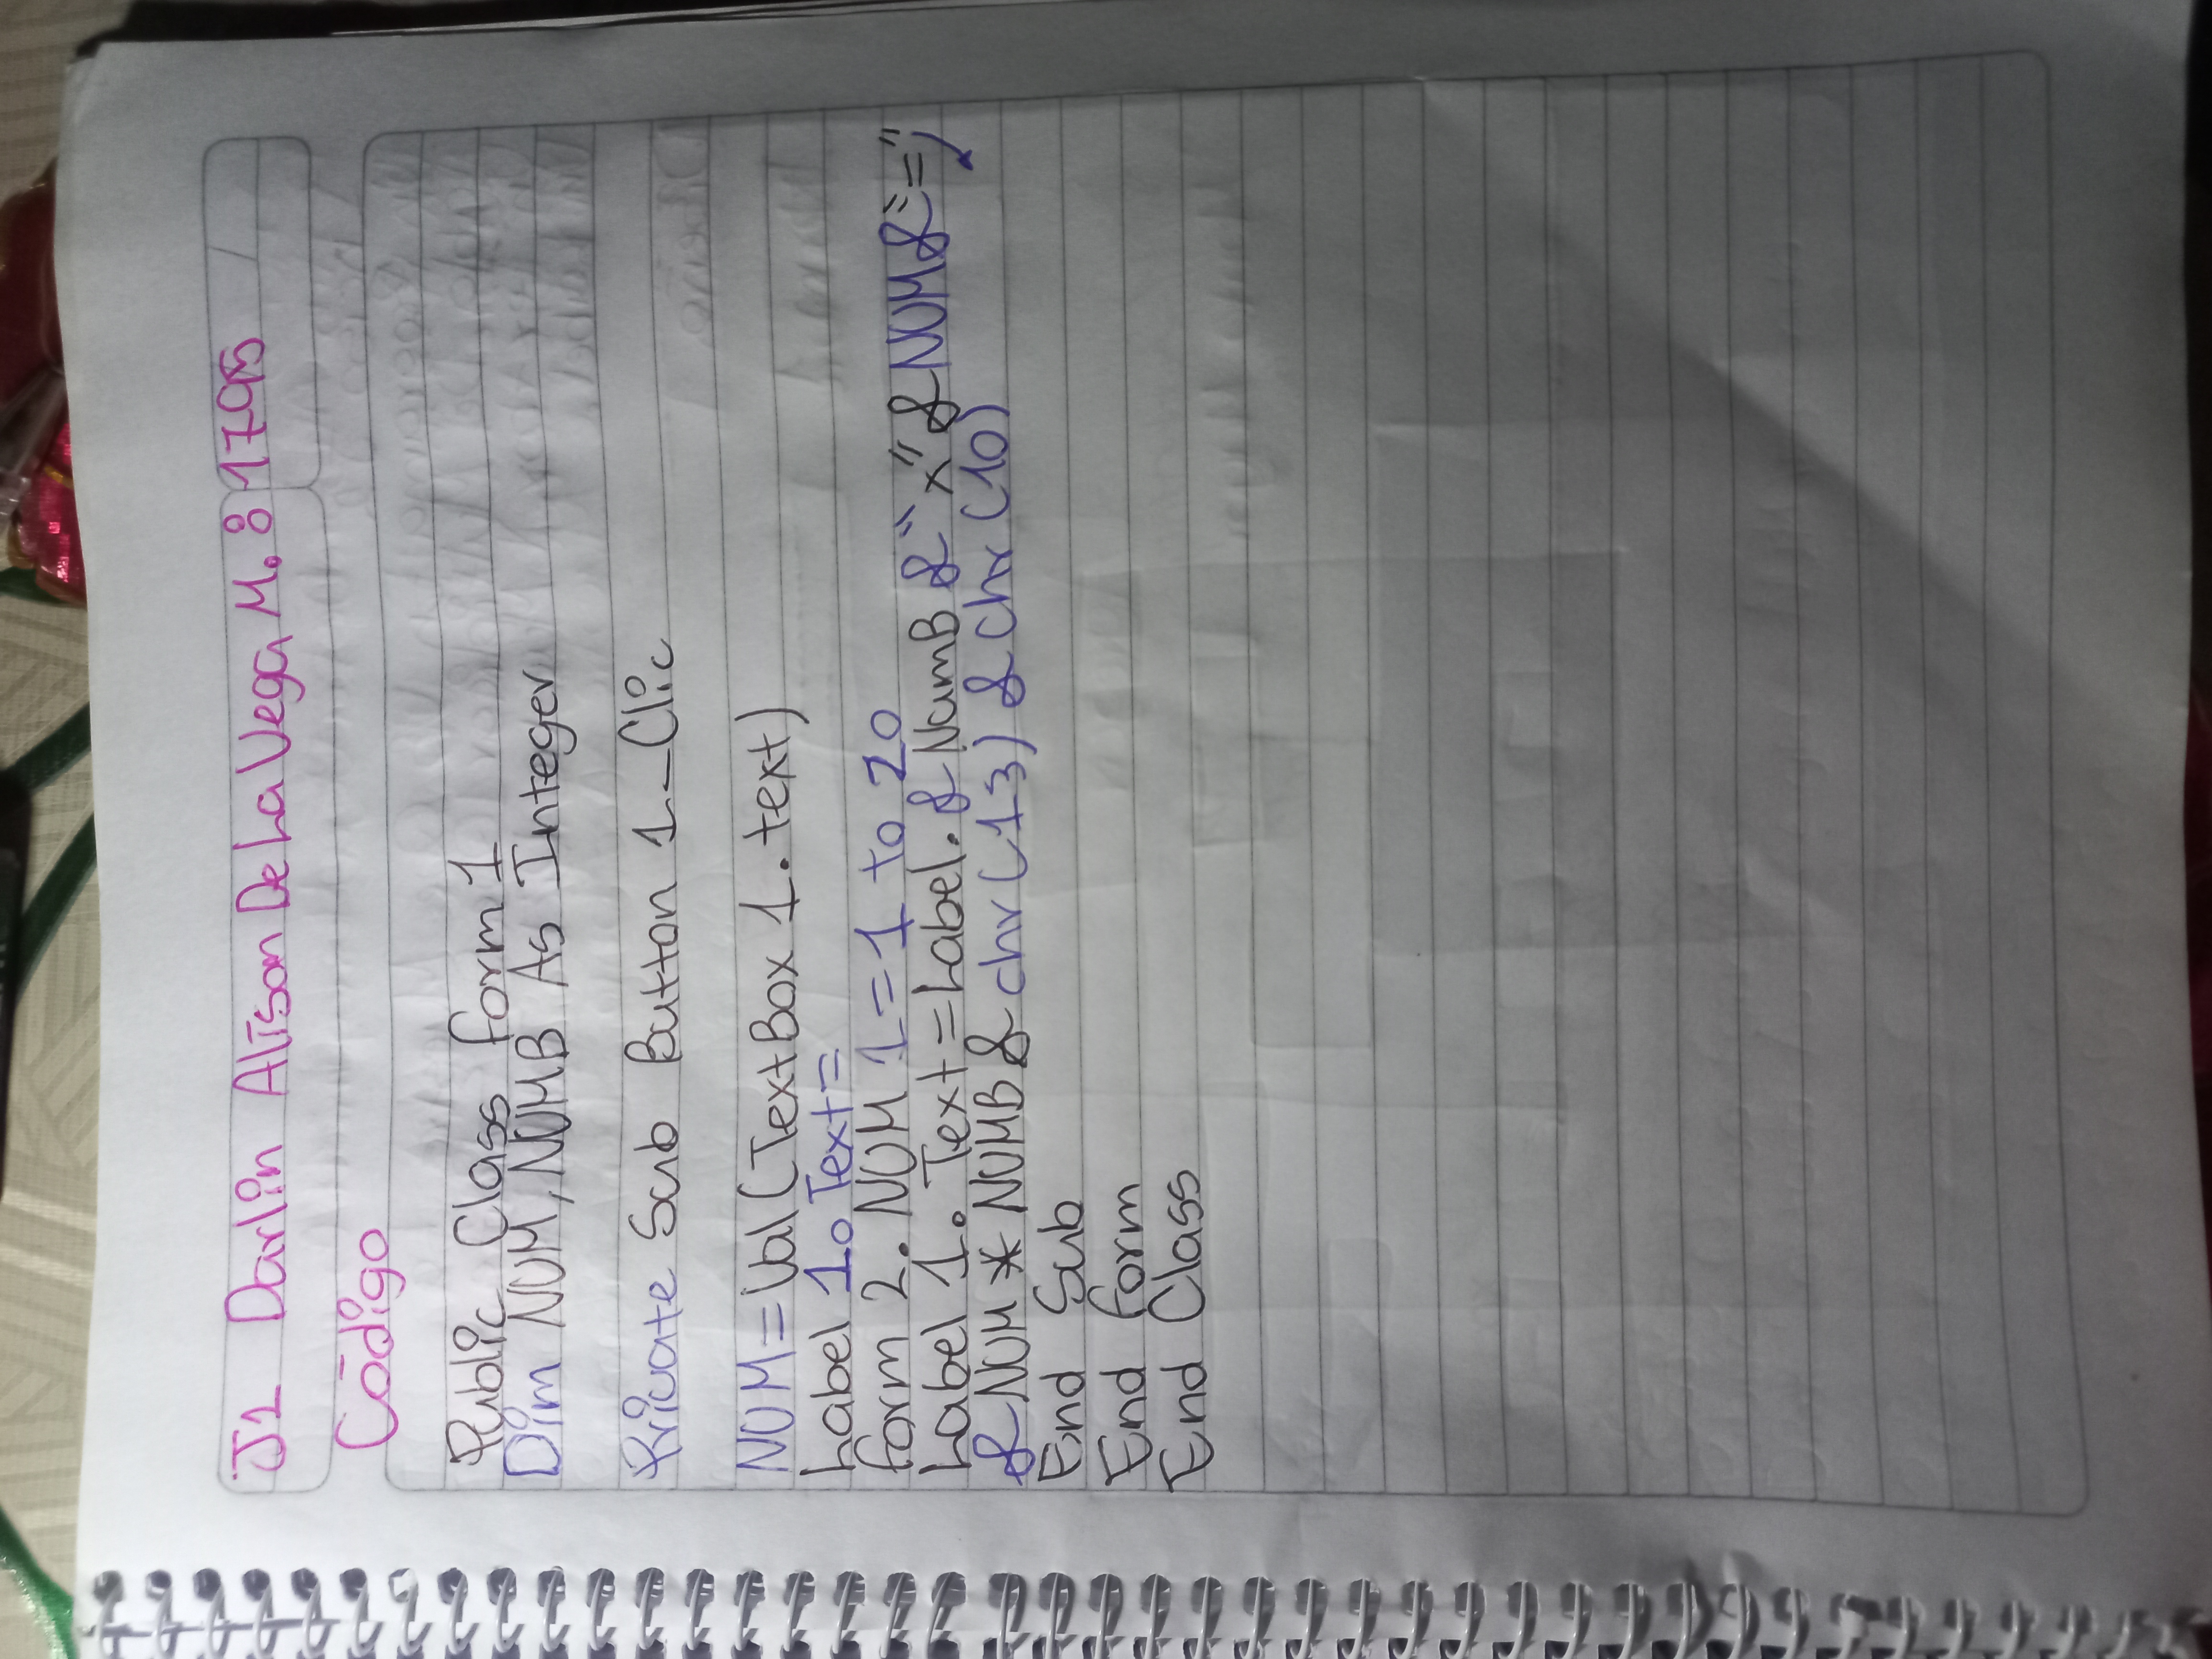 J1 Darlin Alison De La Vega M. 8 1795
Código
Public Class form 1
Dim NUM, NUMB As Integer
Private Sub Button 1_Clic
NUM = Val (TextBox 1. text)
Label 1. Text =
form 2. NUM 1 = 1 to 20
Label 1. Text = Label. & NumB & "x" & NUM & "="
& NUM * NUMB & chr (13) & Chr (10)
End Sub
End form
End Class